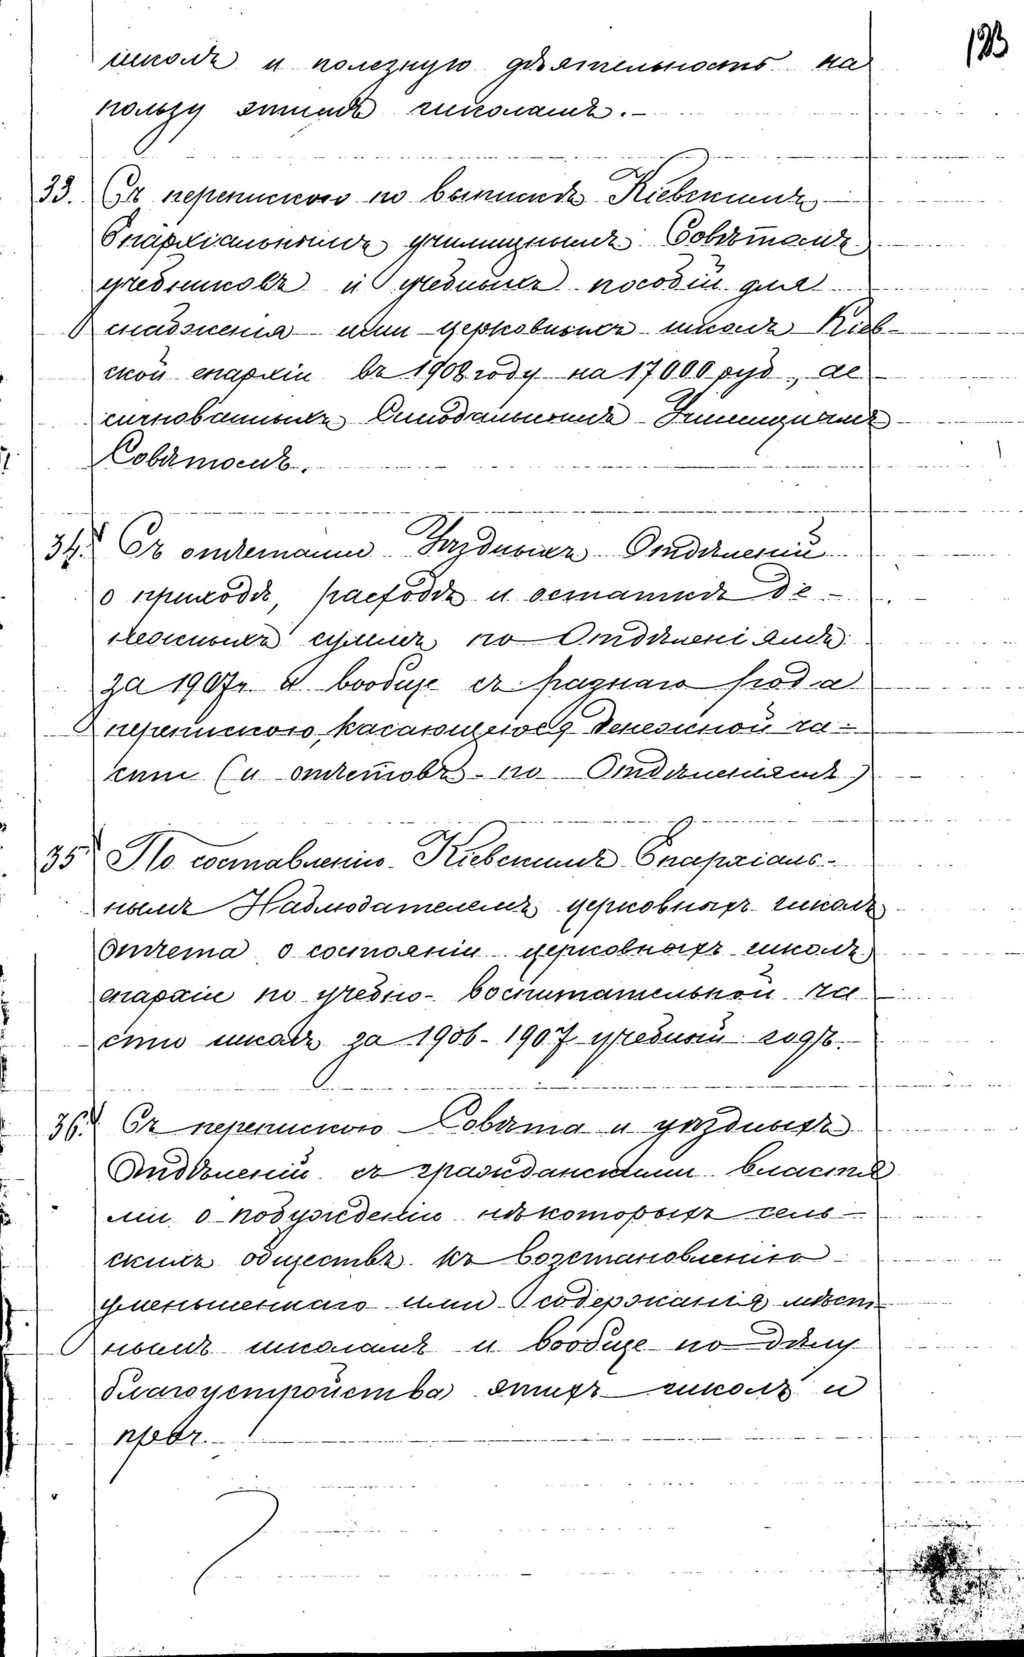 123
школѣ и полезную дѣятельность на
пользу этимъ школамъ.–
33. Съ перепискою по выпискѣ Кіевскимъ
Епархіальнымъ училищнымъ Совѣтомъ
учебниковъ и учебныхъ пособій для
снабженія ими церковныхъ школъ Кіев-
ской епархіи въ 1908 году на 17000 руб., ас
сигнованныхъ Синодальнымъ Училищнымъ
Совѣтомъ.
34. Съ отчетами Уѣздныхъ Отдѣленій
о приходѣ, расходѣ и остаткѣ де-
нежныхъ суммъ по Отдѣленіямъ
за 1907 г. и вообще съ разнаго рода
перепискою, касающеюся денежной ча-
сти (и отчетовъ по Отдѣленіямъ)
35. По составленію Кіевскимъ Епархіаль-
нымъ Наблюдателемъ церковныхъ школъ
отчета о состояніи церковныхъ школъ
епархіи по учебно-воспитательной ча
стию школъ за 1906-1907 учебный годъ.
36. Съ перепискою Совѣта и уѣздныхъ
Отдѣленій съ гражданскими властя
ми о побужденіи нѣкоторыхъ сель-
скихъ обществъ къ возстановленію
уменьшеннаго ими содержанія мѣст-
нымъ школамъ и вообще по дѣлу
благоустройства этихъ школъ и
проч.